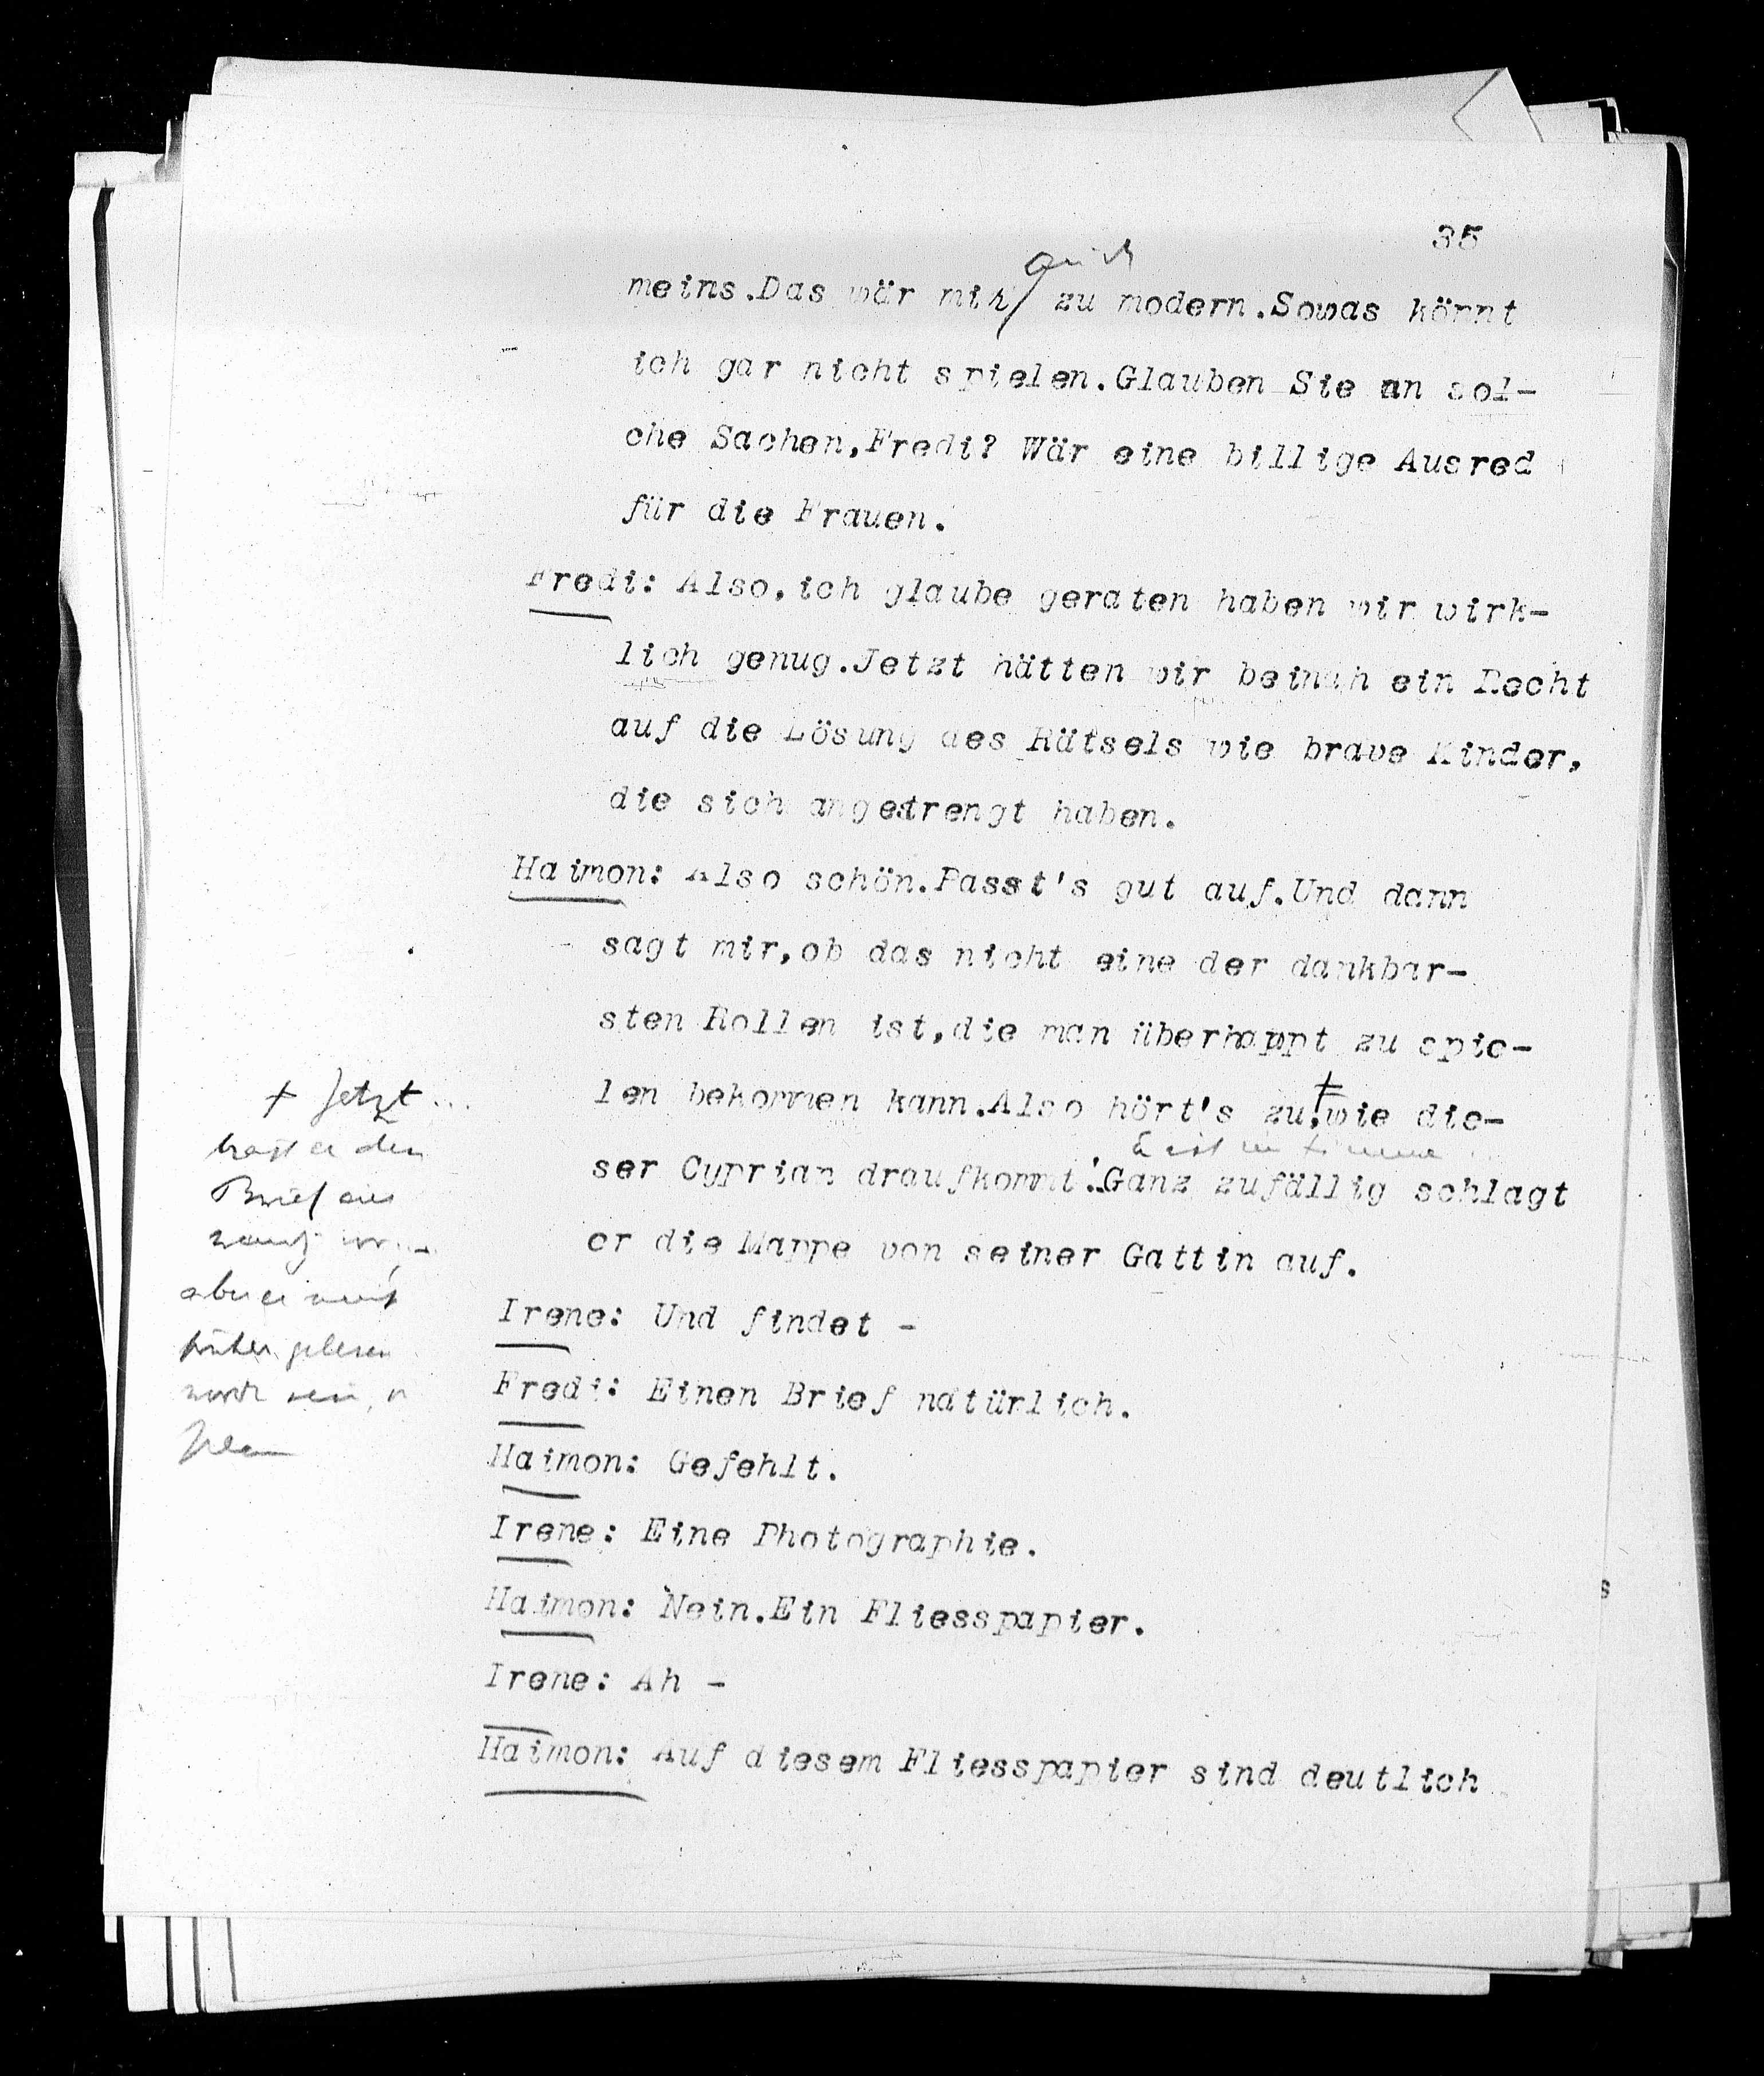 35
auch
meins.Das wär mir zu modern.Sowas könnt
ich gar nicht spielen.Glauben Sie an sol-
che Sachen,Fredi? Wär eine billige Ausred
für die Frauen.
Fredi: Also,ich glaube geraten haben wir wirk-
lich genug.Jetzt hätten wir beinah ein Recht
auf die Lösung des Rätsels wie brave Kinder,
die sich angestrengt haben.
Haimon: Also schön.Passt's gut auf.Und dann
sagt mir,ob das nicht eine der dankbar-
sten Rollen ist,die man überhaupt zu spie-
len bekommen kann.Also hört's zu,wie die-
ser Cyprian draufkommt.Ganz zufällig schlagt
er die Mappe von seiner Gattin auf.
Irene: Und findet -
Fredi: Einen Brief natürlich.
Haimon: Gefehlt.
Irene: Eine Photographie.
Haimon: Nein.Ein Fliesspapier.
Irene: Ah -
Haimon: Auf diesem Fliesspapier sind deutlich
+ Jetzt ...
er den
Brief
früher gelesen
s